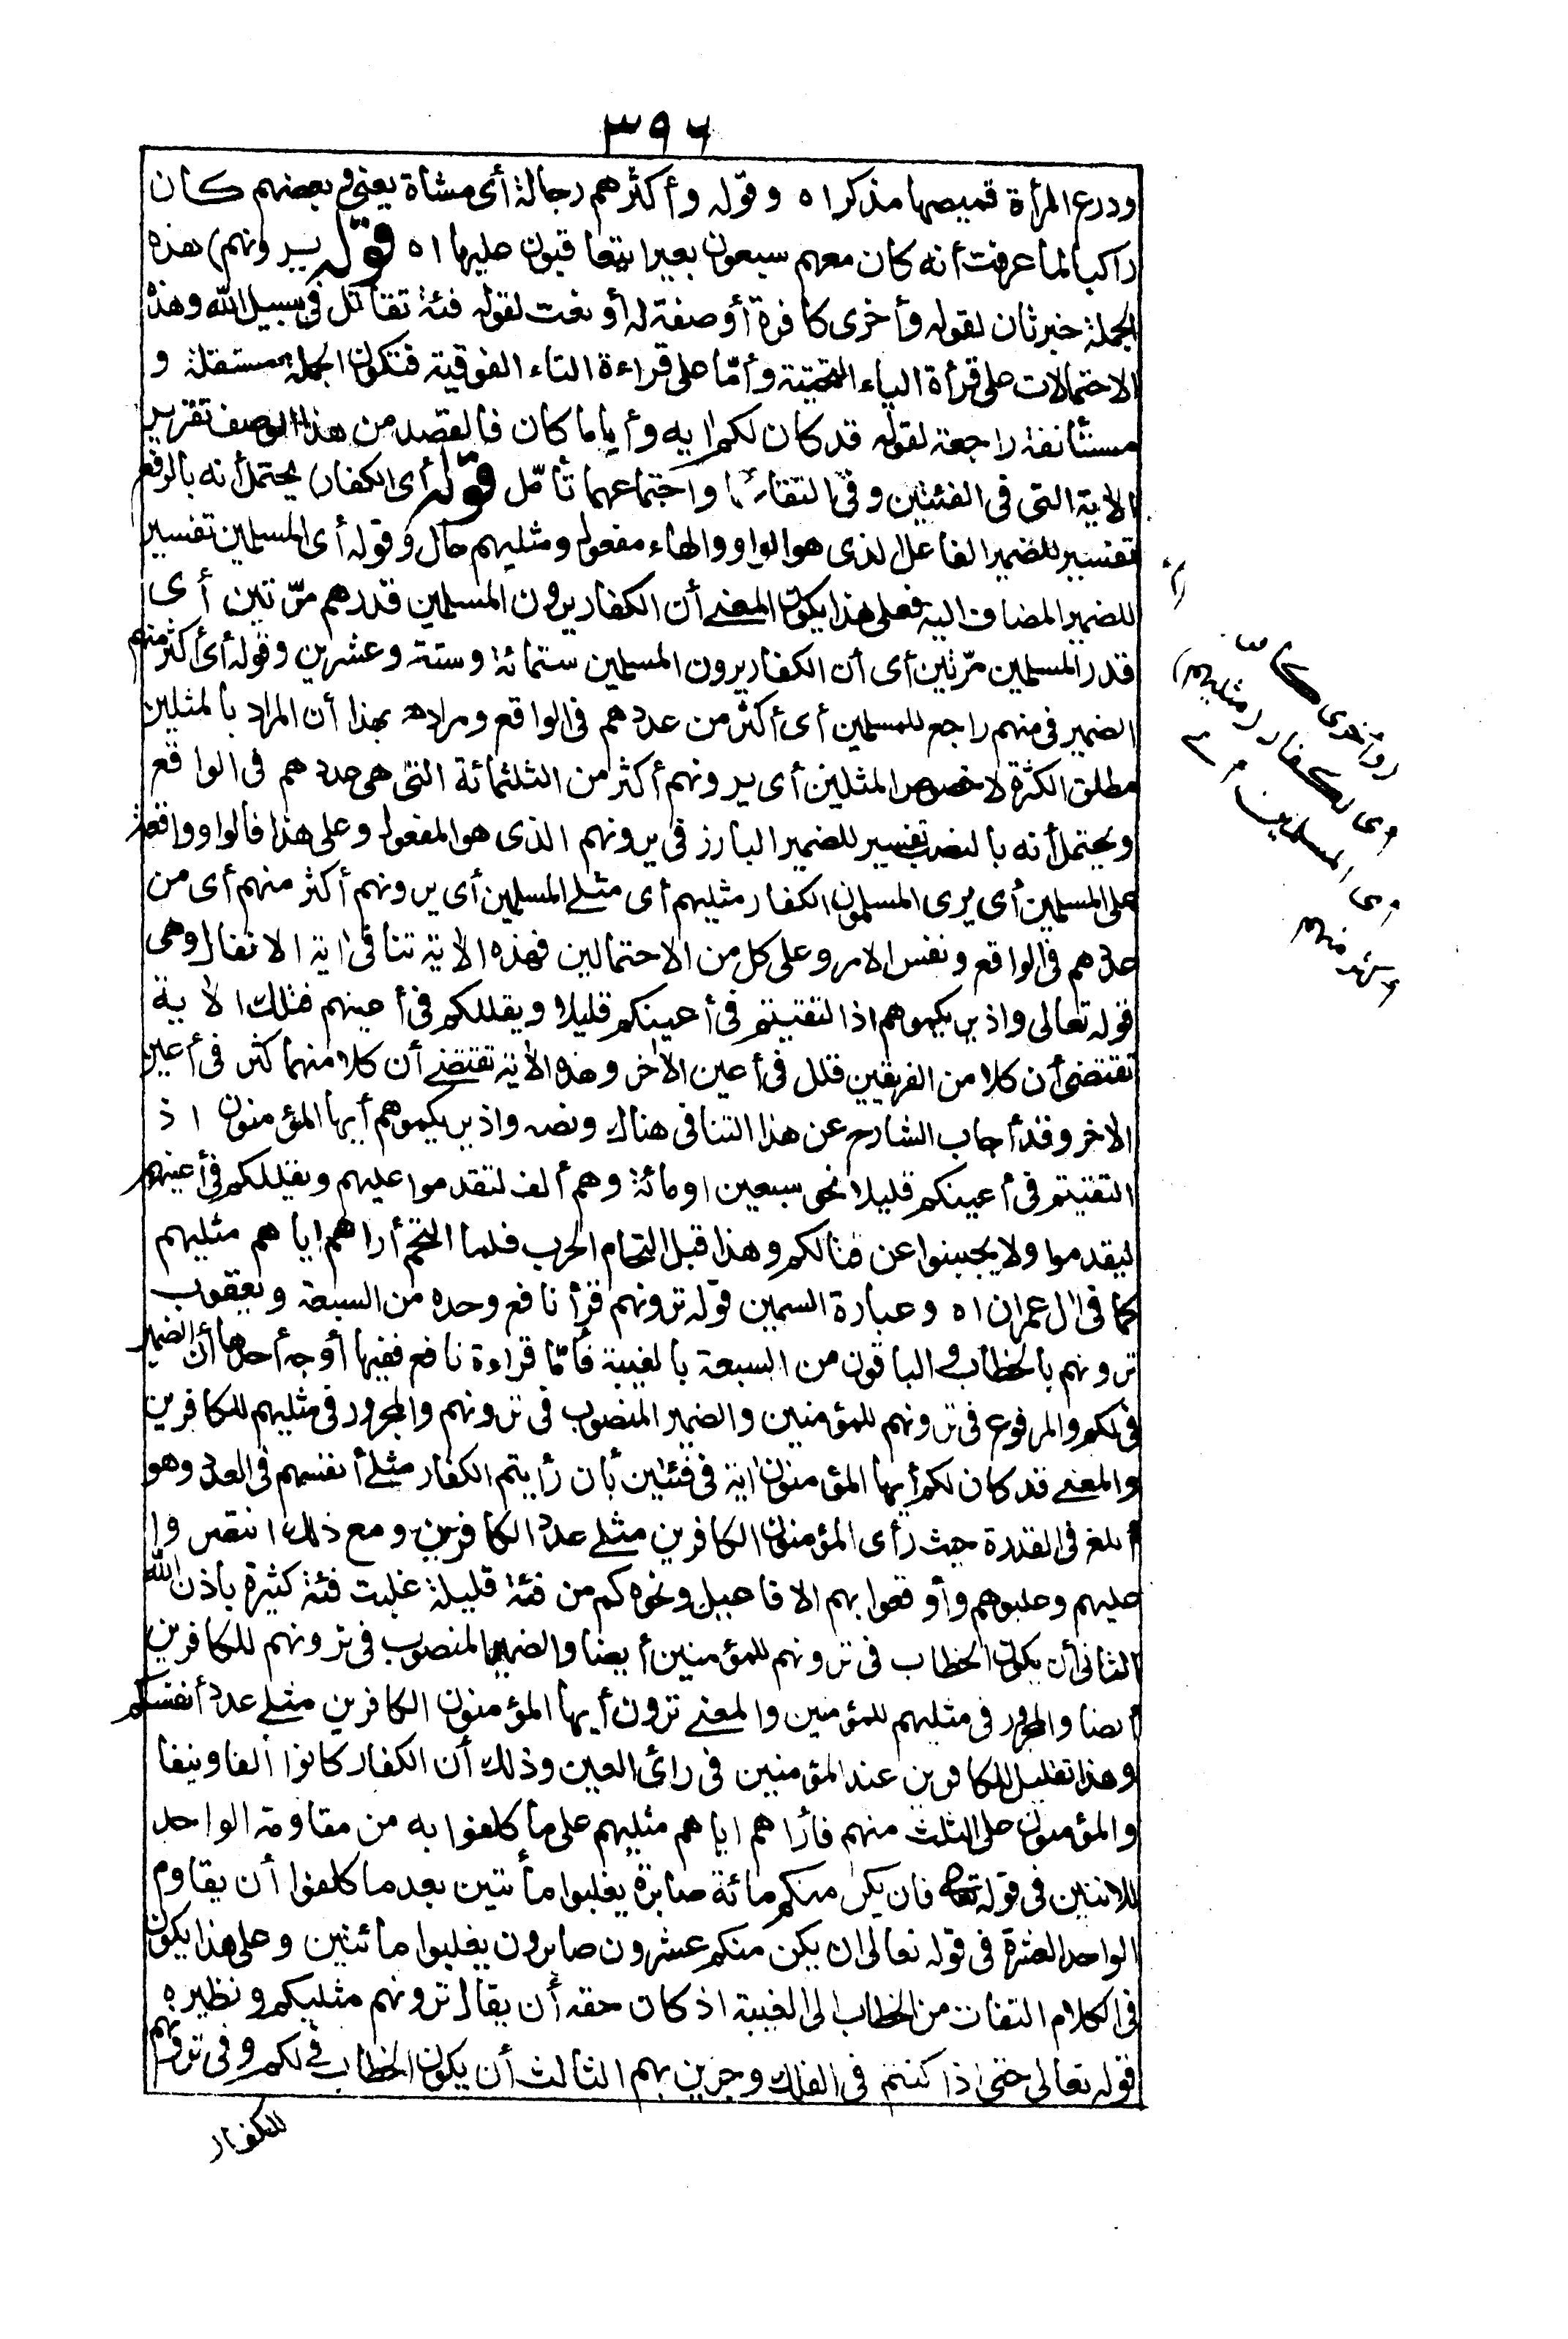 ٣٩٦
ودرع المرأة قميصها مذكر اه وقوله وأكثرهم رجالة أى مشاة يعنى وبعضهم كان
راكبا لما عرفت أنه كان معهم سبعون بعيرا يتعاقبون عليها اه قوله يرونهم) هذه
الجملة خبر ثان لقوله وأخرى كافرة أو صفة له أو نعت لقوله فئة تقاتل فى سبيل الله وهذه
الاحتمالات على قرأة الياء التحتية وأمّا على قراءة التاء الفوقية فتكون الجملة مستقلة و
مستأنفة راجعة لقوله قد كان لكم اٰية وأياما كان فالقصد من هذا الوصف تقرير
الاٰية التى فى الفئتين وفى التقائهما واجتماعهما تأمّل قوله أى الكفار) يحتمل أنه بالرفع
تفسير للضمير الفاعل الذى هو الواو والهاء مفعول ومثليهم حال وقوله أى المسلمين تفسير
للضمير المضاف اليه فعلى هذا يكون المعنے أن الكفار يرون المسلمين قدرهم مرّتين أى
قدر المسلمين مرّتين أى أن الكفار يرون المسلمين ستمائة وستة وعشرين وقوله أى أكثر منهم
الضمير فى منهم راجع للمسلمين أى أكثر من عددهم فى الواقع ومراده بهذا أن المراد بالمثلين
مطلق الكثرة لا خصوص المثلين أى يرونهم أكثر من الثلثمائة التى هى عددهم فى الواقع
ويحتمل أنه بالنصب تفسير للضمير البارز فى يرونهم الذى هو المفعول وعلى هذا فالواو واقعة
على المسلمين أى يرى المسلمون الكفار مثليهم أى مثلے المسلمين أى يرونهم أكثر منهم أى من
عددهم فى الواقع ونفس الامر وعلى كل من الاحتمالين فهذه الاٰية تنافى اٰية الانفال وهى
قوله تعالى واذ يريكموهم اذ التقيتم فى أعينكم قليلا ويقللكم فى أعينهم فتلك الاٰية
تقتضى أن كلا من الفريقين قلل فى أعين الاٰخر وهذه الاٰية تقتضے أن كلا منهما كثر فى أعين
الاخر وقد أجاب الشارح عن هذا التنافى هناك ونصه واذ يريكموهم أيها المؤمنون اذ
التقيتم فى أعينكم قليلا نحو سبعين او مائة وهم ألف لتقدموا عليهم ويقللكم فى أعينهم
ليقدموا ولا يجبنوا عن قتالكم وهذا قبل التحام الحرب فلما التحم أراهم اياهم مثليهم
كما فى اٰل عمران اه وعبارة السمين قوله ترونهم قرأ نافع وحده من السبعة ويعقوب
ترونهم بالخطاب والباقون من السبعة بالغيبة فأمّا قراءة نافع ففيها أوجه أحدها أن الضمير
فى لكم والمرفوع فى ترونهم للمؤمنين والضمير المنصوب فى ترونهم والمجرور فى مثليهم للكافرين
والمعنے قد كان لكم أيها المؤمنون اٰية فى فئتين بأن رأيتم الكفار مثلے أنفسهم فى العدد وهو
أبلغ فى القدرة حيث رأى المؤمنون الكافرين مثلے عدد الكافرين ومع ذلك انتصروا
عليهم وغلبوهم وأوقعوا بهم الافاعيل ونحوه كم من فئة قليلة غلبت فئة كثيرة باذن الله
الثانى أن يكون الخطاب فى ترونهم للمؤمنين أيضا والضمير المنصوب فى ترونهم للكافرين
أيضا والمجرور فى مثليهم للمؤمنين والمعنے ترون أيها المؤمنون الكافرين مثلے عدد أنفسكم
وهذا تقليل للكافرين عند المؤمنين فى رأى العين وذلك أن الكفار كانوا ألفا ونيفا
والمؤمنون على الثلث منهم فأراهم اياهم مثليهم على ما كلفوا به من مقاومة الواحد
للاثنين فى قوله تعالى فان يكن منكم مائة صابرة يغلبوا مأتين بعد ما كلفوا أن يقاوم
الواحد العشرة فى قوله تعالى ان يكن منكم عشرون صابرون يغلبوا مائتين وعلى هذا يكون
فى الكلام التفات من الخطاب الى الغيبة اذ كان حقه أن يقال ترونهم مثليكم ونظيره
قوله تعالى حتى اذا كنتم فى الفلك وجرين بهم الثالث أن يكون الخطاب فى لكم وفى ترونهم
للكفار
أى الكفار (مثليهم)
أى المسلمين
أكثر منهم